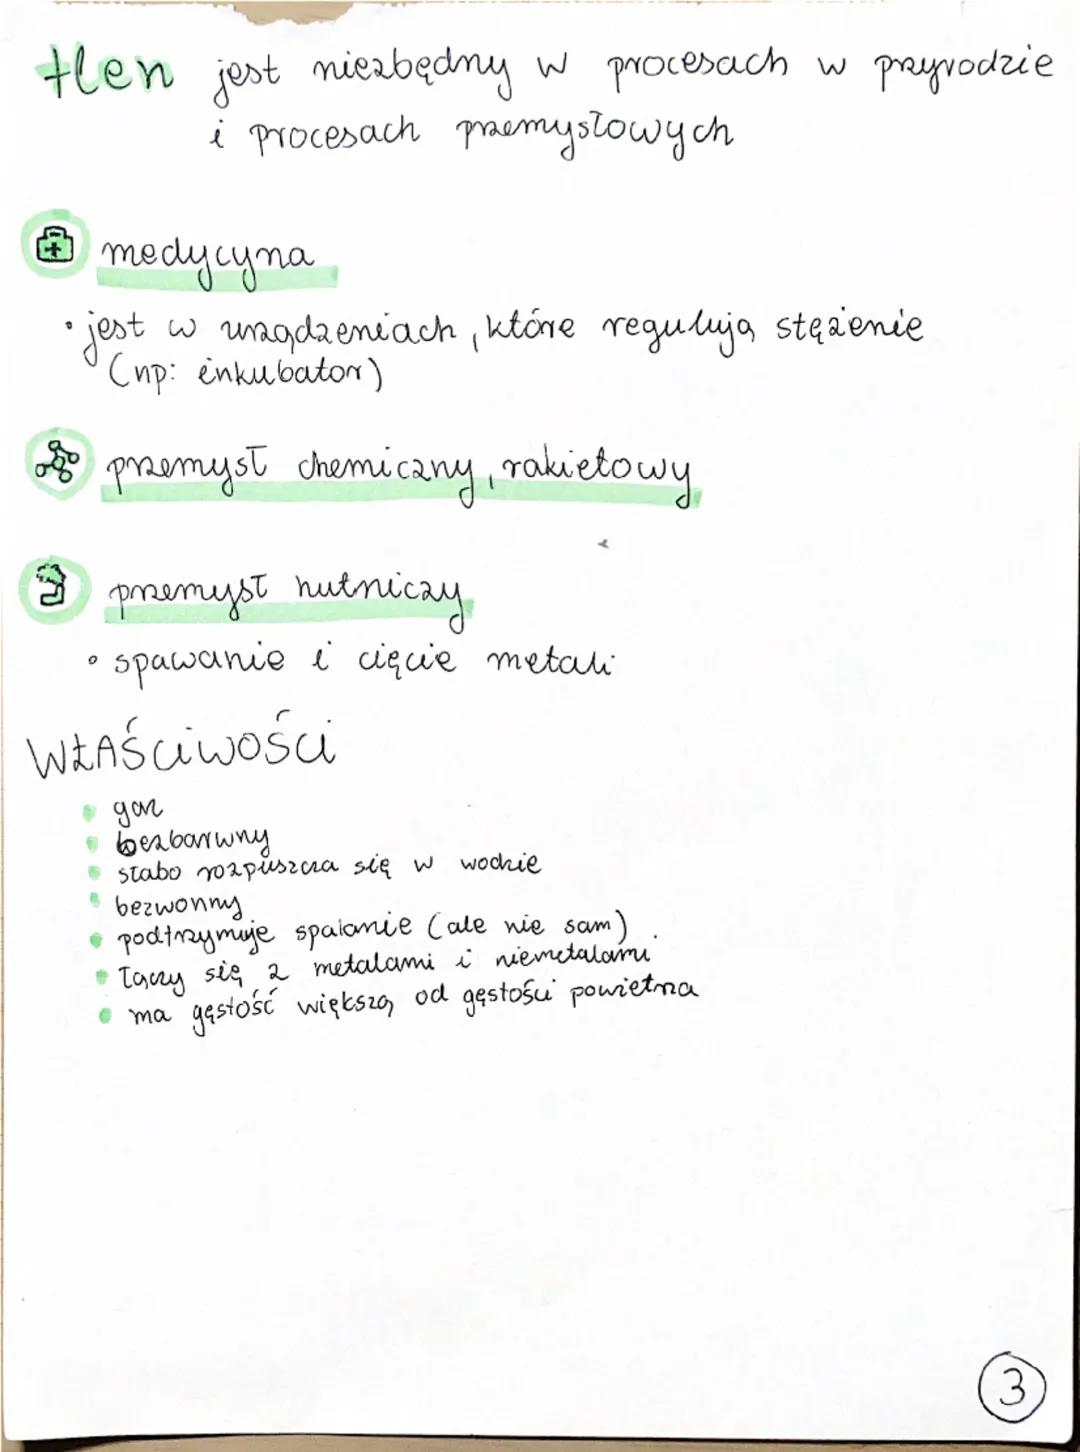 tlen jest niezbędny w procesach w przyrodzie
i procesach przemysłowych
medycyna
• jest w urządzeniach, które regulują stężenie
(np: inkubator)
przemysł chemiczny, rakietowy
przemysł hutniczy
• spawanie i cięcie metali
WŁAŚCIWOŚCI
• gaz
• bezbarwny
• słabo rozpuszcza się w wodzie
• bezwonny
• podtrzymuje spalanie (ale nie sam).
• łączy się z metalami i niemetalami
• ma gęstość większą od gęstości powietrza
3